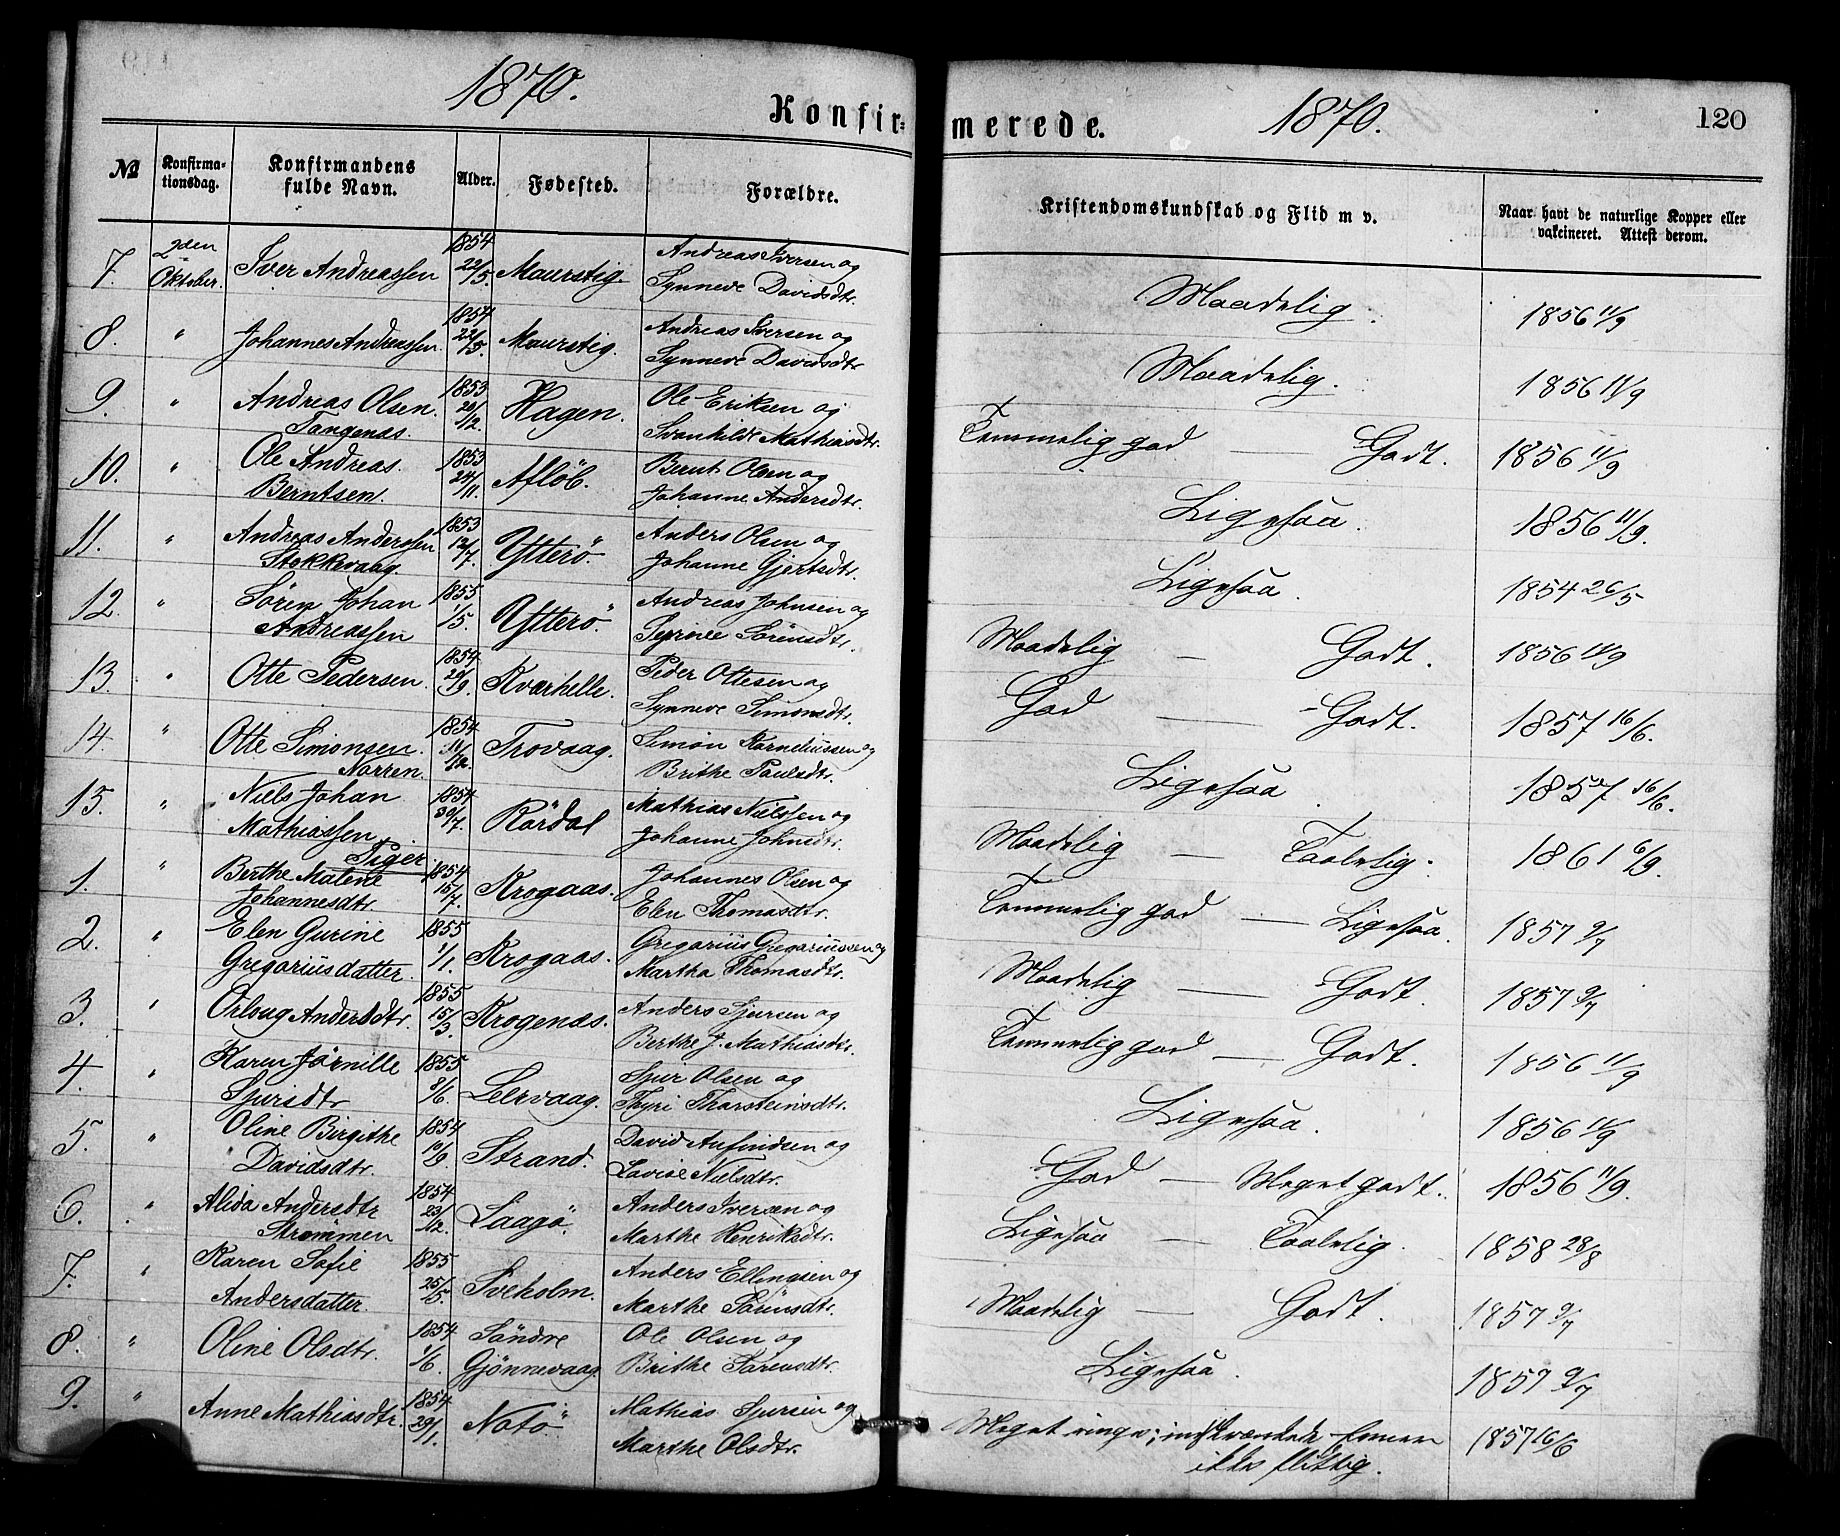 1870.
Konfir-
№
Konfirma-
tionsdag.
Konfirmandens
fulde Navn.
Alder.
Fødested.
Forældre.
7. 2den Oktober. Iver Andreassen 1854 22/5 Maurstig. Andreas Iversen og
Synneve Davidsdtr.
8. " Johannes Andreassen 1854 22/5. Maurstig. Andreas Iversen og
Synneve Davidsdtr.
9. " Andreas Olsen 1853 Hagen. Ole Eriksen og
Tangenes. Svanhilde Mathiasdtr.
10. " Ole Andreas 1853 24/11. Afløb. Bernt Olsen og
Berntsen. Johanne Andersdtr.
11. " Andreas Anderssen 1853 12/7. Ytterö. Anders Olsen og
Stokkevaag. Johanne Gjertsdtr.
12. " Sören Johan 1855 1/5. Ytterö. Andreas Johnsen og
Andreassen Sörensdtr.
13. " Otte Pedersen. 1854 Kvarhelle. Peder Ottesen og
Synneve Simonsdtr.
14. " Otte Simonsen. 1854 Trovaag. Simon Korneliussen og
Norren. Brithe Paulsdtr.
15. " Niels Johan 1854 30/7. Rördal Mathias Nielssen og
Mathiassen Johanne Johnsdtr.
Piger.
1. " Berthe Malene 1854 15/7. Krogaas. Johannes Olsen og
Johannesdtr. Elen Thomasdtr.
2. " Elen Gurine 1855 1/1. Krogaas. Gregorius Gregoriussen og
Gregoriusdatter. Martha Thomasdtr.
3. " Orloug Andersdtr. 1855 15/3. Krogenæs. Anders Sjursen og
Berthe J. Mathiasdtr.
4. " Karen Jörnille 1855 8/6. Lervaag. Sjur Olsen og
Sjursdtr Thyri Tharsteinsdtr.
5. " Oline Birgithe 1854 10/9. Strand. David Anfindsen og
Davidsdtr. Lovise Nielsdtr.
6. " Alida Andersdtr 1854 23/12. Laagö. Anders Iversen og
Strömmen Marthe Henriksdtr.
7. " Karen Sofie 1855 25/5. Sveholm. Anders Ellingsen og
Andersdatter. Marthe Sörensdtr.
8. " Oline Olsdtr. 1854 1/6. Söndre Ole Olsen og
Gjönnevaag. Brithe Sörensdtr.
9. " Anne Mathiasdtr. 1854 29/1. Notö. Mathias Sjursen og
Marthe Olsdtr.
merede.
1870.
120
Kristendomskundskab og Flid m v.
Naar havt de naturlige Kopper eller
vakcineret. Attest derom.
Maadelig 1856 11/9
Maadelig. 1856 11/9
Temmelig god — Godt. 1856 11/9
Ligesaa. 1856 11/9.
Ligesaa. 1854 26/5
Maadelig — Godt. 1856 11/9
God — Godt. 1857 16/6.
Ligesaa. 1857 16/6.
Maadelig — Taalelig. 1861 6/9.
Temmelig god — Ligesaa. 1857 9/7
Maadelig — Godt. 1857 9/7
Temmelig god — Godt. 1856 11/9
Ligesaa. 1856 11/9
God — Meget godt. 1856 11/9.
Ligesaa — Taalelig. 1858 28/8
Maadelig — Godt. 1857 9/7
Ligesaa. 1857 9/7
Meget ringe; indskrænket 1857 16/6
ikke flittig.